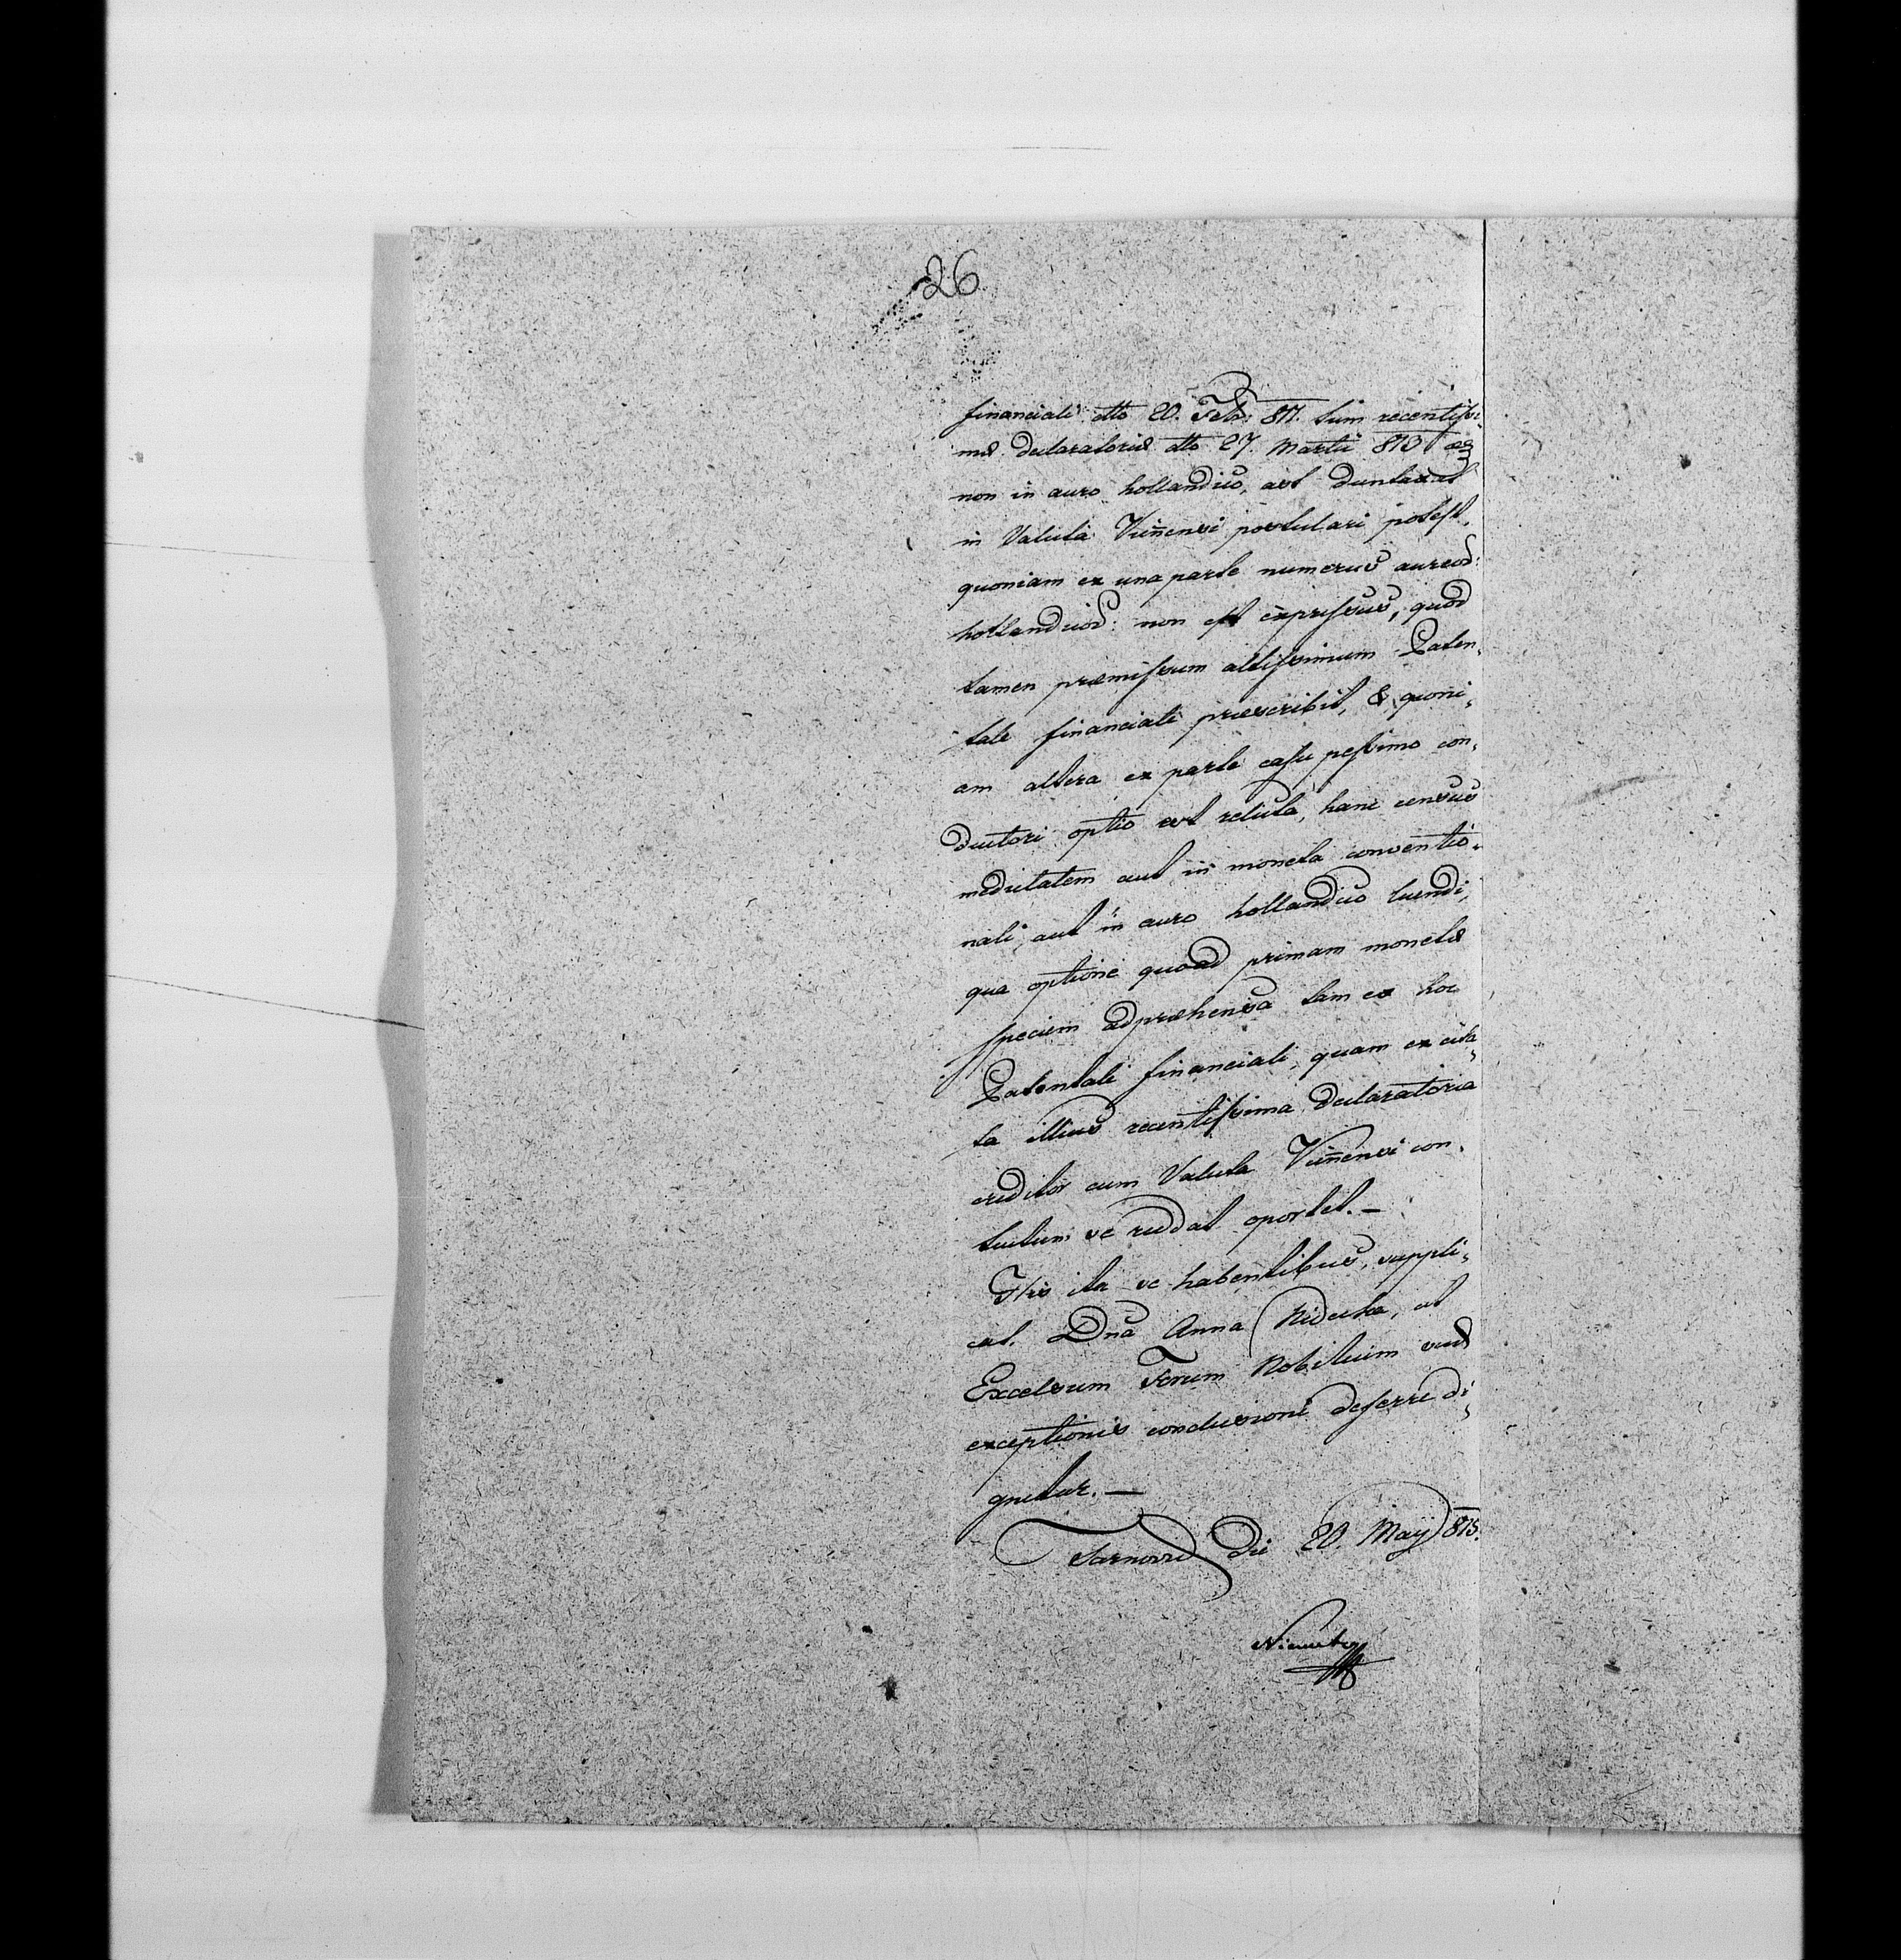 26
financiali dtto 20. Feb: 811. tum recentissi,
mæ declaratoriæ dtto 27. Martii 813
non in auro hollandico, ast duntaxat
in Valuta Viennensi postulari potest,
quoniam ex una parte numerus aureor:
hollandicor: non est expressus, quod
tamen præmissum altissimum Paten,
tale financiale præscribit, & quoni,
am altera ex parte casu pessimo con,
ductori optio est relicta, hanc census
medietatem aut in moneta conventio,
nali, aut in auro hollandico luendi,
qua optione quoad primam monetæ
speciem adpræhensa tam ex hoc
Patentali financiali, quam ex cita,
ta illius recentissima declaratoria
creditor cum Valuta Viennensi con,
tentum se reddat oportet. —
His ita se habentibus, suppli,
cat Dna Anna ut
Excelsum Forum Nobilium suæ
exceptionis conclusioni deferre di,
gnetur. —
Tarnoviæ die 20. Maij 815.